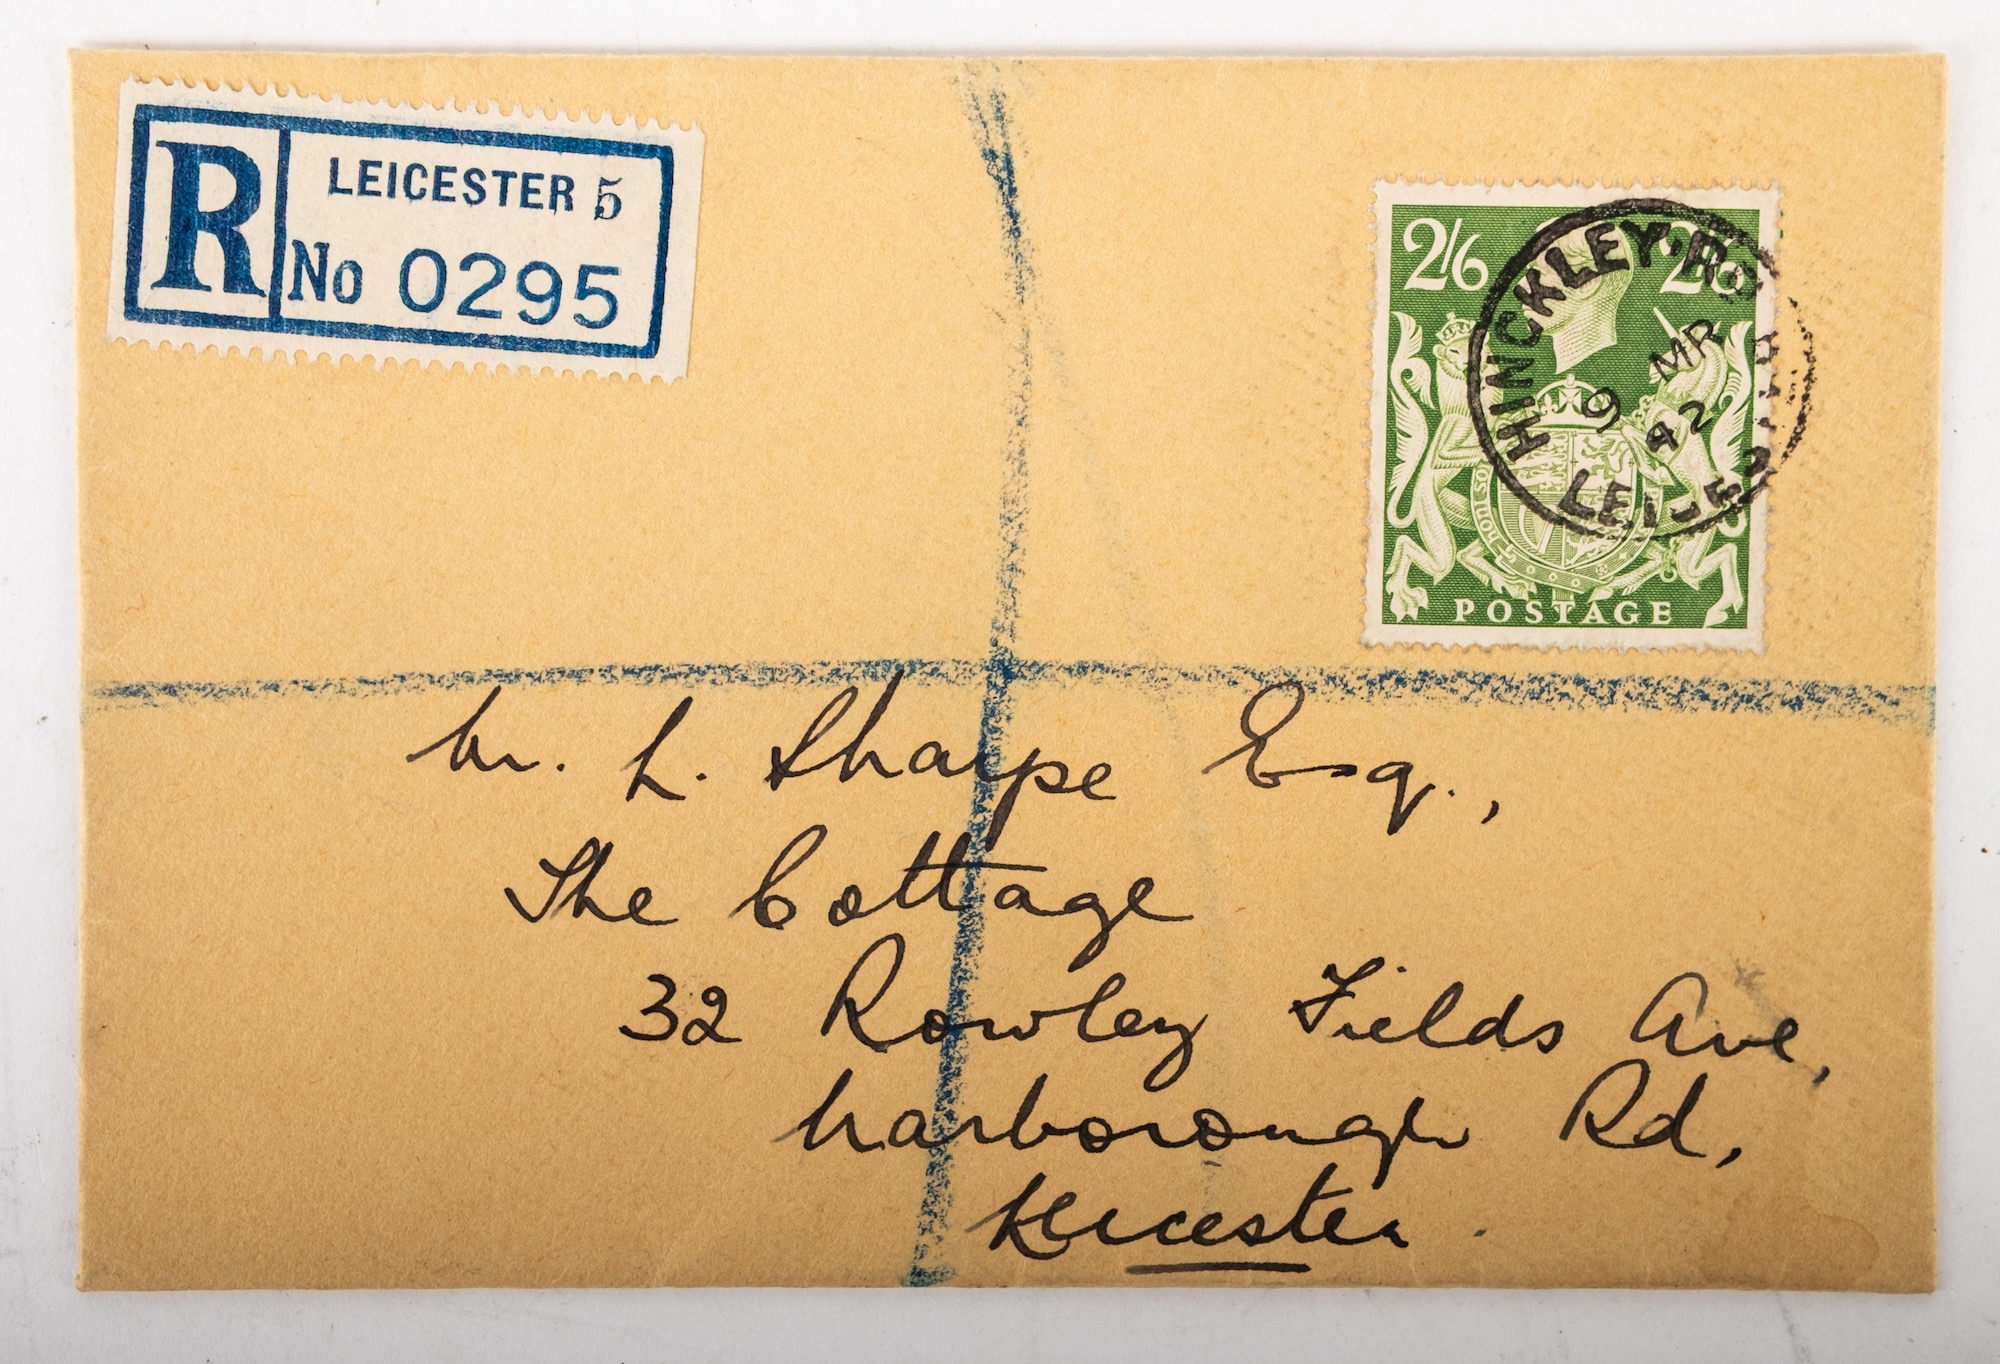 R
LEICESTER 5
No 0295
2/6 2/6
HINCKLEY RD
9 MR
42
POSTAGE
Mr. L. Sharpe Esq.,
The Cottage
32 Rowley Fields Ave,
Narborough Rd,
Leicester.